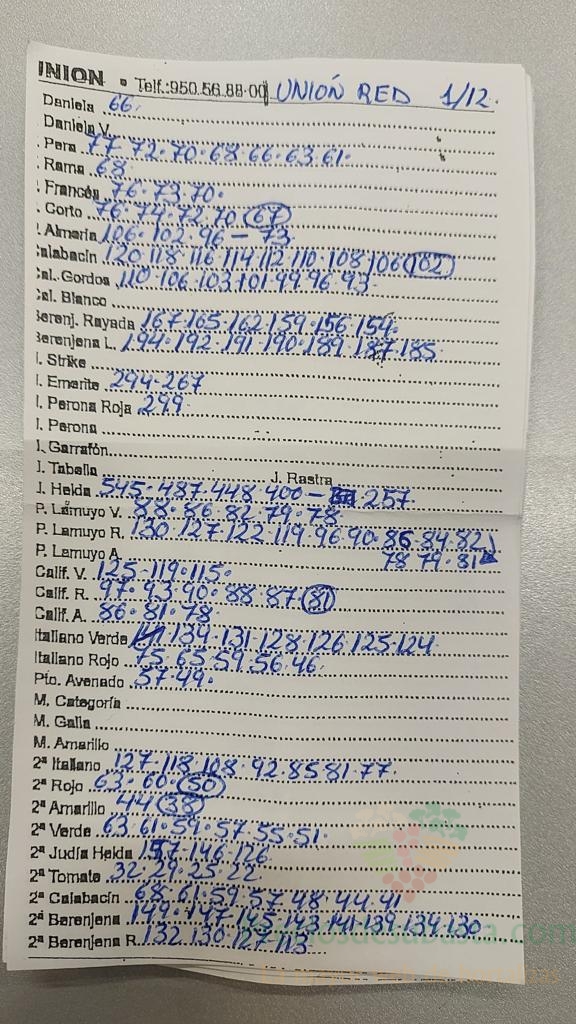 UNION • Telf.:950.56.88.00 UNIÓN RED 1/12.
Daniela 66.
Daniela V.
Pera 77 72.70.68.66.63.61.
Rama 68
Francés 76.73.70.
Corto 76.74.72.70 (67)
Almería 106.102.96 - 73
Calabacín 120.118.116.114.112.110.108.106 (102)
Cal. Gordos 110.106.103.101.99.96.93.
Cal. Blanco
Berenj. Rayada 167.165.162.159.156.154.
Berenjena L. 194.192.191.190.189.187.185
J. Strike
J. Emerite 294-267
J. Perona Roja 299
J. Perona
J. Garrafón
J. Tabella J. Rastra
J. Helda 545.487.448.400 - 257
P. Lamuyo V. 88.86.82.79.78
P. Lamuyo R. 130.127.122.119.96.90.86.84.82
P. Lamuyo A 78 79.81
Calif. V. 125-119.115.
Calif. R. 97.93.90.88.87 (81)
Calif. A. 86.81.78
Italiano Verde 134.131.128.126.125.124
Italiano Rojo 75.65.59.56.46
Pto. Avenado 57.49.
M. Categoría
M. Galia
M. Amarillo
2ª Italiano 127.118.108.92.85 81.77.
2ª Rojo 63.60.(50)
2ª Amarillo 44 (38)
2ª Verde 63.61.59.57.55.51.
2ª Judía Helda 157.146.126
2ª Tomate 32.29.25.22
2ª Calabacín 68.61.59.57.48.44.41
2ª Berenjena 149.147.145.143.141.139.134.130
2ª Berenjena R. 132.130.127.113